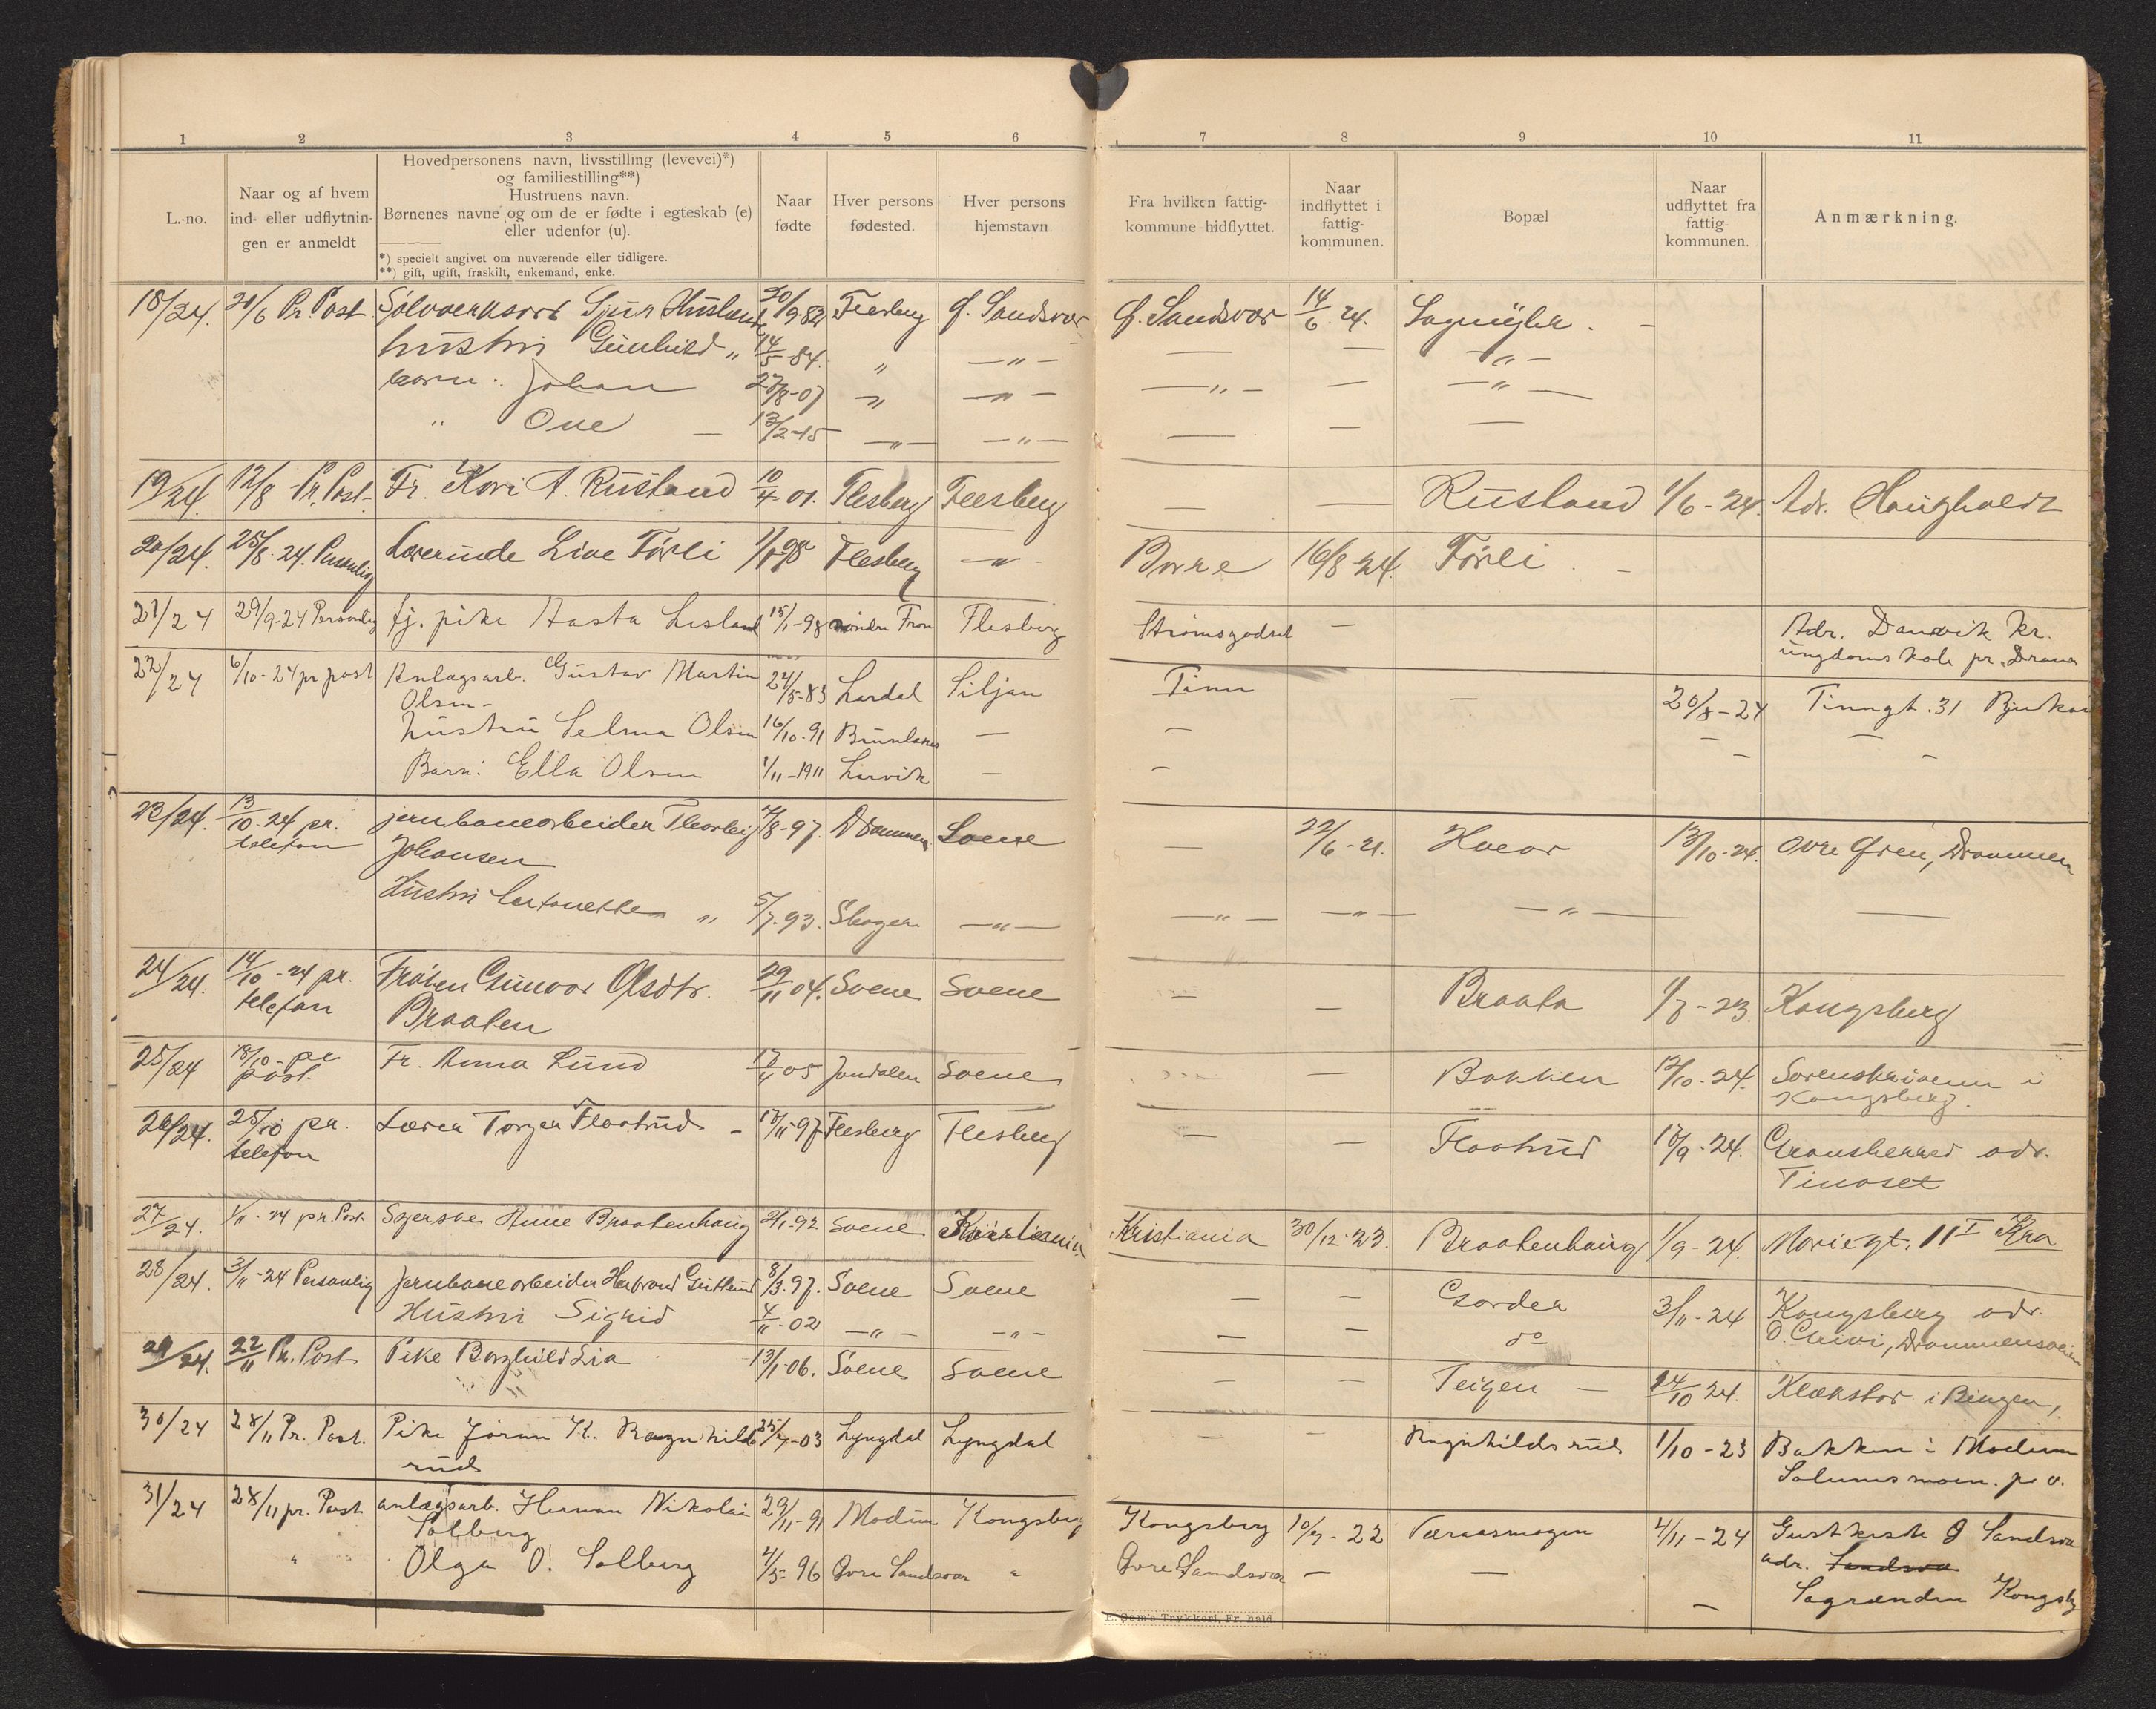 1 2 3 4 5 6 7 8 9 10 11
L.-no.
Naar og af hvem
ind- eller udflytnin-
gen er anmeldt
Hovedpersonens navn, livsstilling (levevei)*)
og familiestilling**)
Hustruens navn.
Børnenes navne og om de er fødte i egteskab (e)
eller udenfor (u).
*) specielt angivet om nuværende eller tidligere.
**) gift, ugift, fraskilt, enkemand, enke.
Naar
fødte
Hver persons
fødested.
Hver persons
hjemstavn.
Fra hvilken fattig-
kommune hidflyttet.
Naar
indflyttet i
fattig-
kommunen.
Bopæl
Naar
udflyttet fra
fattig-
kommunen.
Anmærkning.
18/24. Pr. Post Sjur 20/9-82 Flesberg Ø. Sandsvær Ø. Sandsvær 14/6 24. —
hustru Gunhild " 14/5-84. " —"— — — —"—
barn: Johan 27/8-07 —"— —"— —"— — —"—
" Ove — 13/2-15 —"— —"— — — —
19/24. 12/8 Pr. Post Fr. Kari A. Rustand 10/4-01. Flesberg Flesberg — — Rustand 1/6-24. Adr. Haugholdt
20/24. 25/8-24. Personlig Lærerinde Live Førli Flesberg —"— Borre 16/8-24. Førli —
21/24 29/9-24 Personlig Tj. pike Aasta Lisland 15/1-98 søndre Fron Flesberg Strømsgodset — Adr. Danvik kr.
ungdomskole pr. Dramn
22/24 6/10-24 pr post Anlægsarb. Gustav Martin 24/5-83 Lardal Siljan Tinn — 20/8-24 Tinngt. 31 Rjukan
Olsen-
hustru Selma Olsen 16/10-91 Brunlanes — — — —
Barn: Ella Olsen 1/11-1911 Larvik — — — —
23/24. 13/10-24 pr. jernbanearbeider Thorleif 4/8-97. Drammen Svene — 22/6-21. Hvaor 13/10-24. Øvre Øren, Drammen
telefon Johansen
Hustru Antonette " 5/7-93. Skoger —"— —"— —"— —"— —
24/24. 14/10-24 pr. Frøken Gunvor Olsdtr. 29/11 04. Svene Svene — — Braata 1/8-23. Kongsberg
telefon Braaten
25/24 18/10-pr Fr. Anna Lund 17/4 05 Jondalen Svene — — Bakken 12/10-24. Sorenskriveren i
post. Kongsberg.
26/24. 25/10 pr. Lærer Torger Flaatrud — 17/11-97 Flesberg Flesberg — — Flaatrud 17/9-24. Gransherred adr.
telefon Tinoset
27/24. 1/11-24 pr. Post Syerske Anne Braatenhaug 2/1-92 Svene Kristiania Kristiania 30/12-23. Braatenhaug 1/9-24. Mariegt. 11 I Kra
28/24. 3/11-24 Personlig Jernbanearbeider Herbrand 8/3.97. Svene Svene — — Gorder 3/11-24 Kongsberg adr.
Hustru Sigrid 4/11-02 —"— —"— — — do O. Drammensveien
29/24. 22/11 Pr. Post Pike Borghild Lia 13/1-06. Svene Svene — — Teigen — 14/10 24. Klækstor i Bingen,
30/24 28/11 Pr. Post. Pike Jørun K. Ragnhilds 25/7-03 Lyngdal Lyngdal — — Ragnhildsrud 1/10-23 Bakken i Modum
rud Solumsmoen. p. o.
31/24 28/11 pr. Post anlægsarb. Herman Nikolai 29/11-91 Modum Kongsberg Kongsberg 10/7-22 Væraasmogen 4/11-24 Ø Sandsvær
Solberg adr. Sandsvær
" Olga O. Solberg 4/5-96 Øvre Sandsvær " Øvre Sandsvær — — — Sagrenden Kongsbg
E. Qem's Trykkeri, Fr. hald.